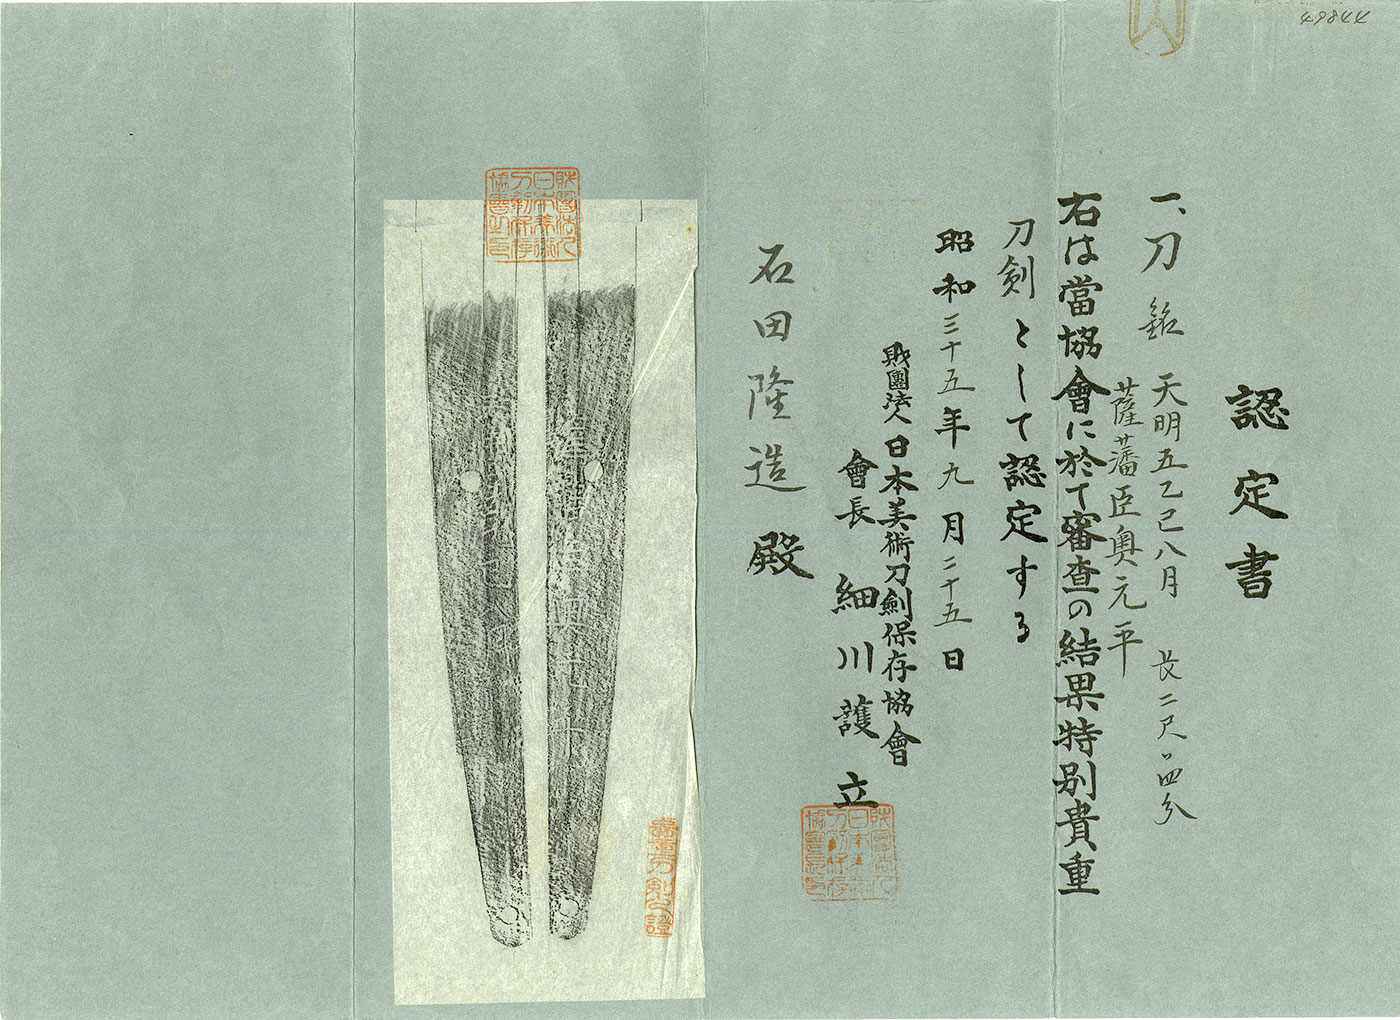 49844
認定書
一、刀 銘 天明五乙巳八月 長二尺〃四分
薩藩臣奥元平
右は當協會に於て審査の結果特別貴重
刀剣として認定する
昭和三十五年九月二十五日
財團法人日本美術刀劍保存協會
會長 細川護立
石田隆造殿
財團法人
日本美術
刀剣保存
協會長印
財團法人
日本美術
刀剣保存
協會之印